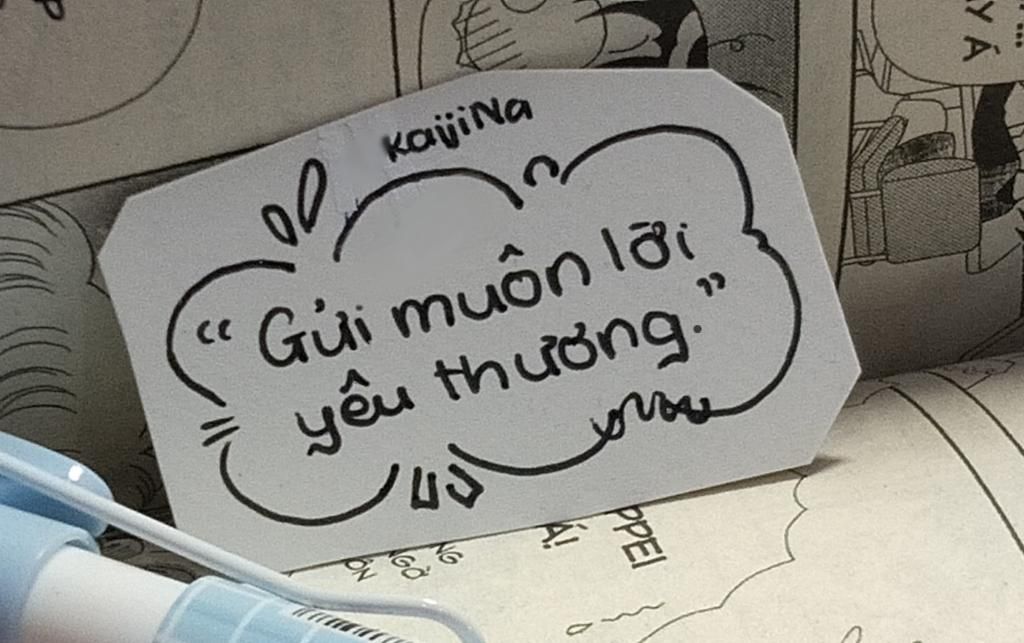 KaijiNa
“Gửi muôn lời
yêu thương.”
Y Á
...
PPEI
Á!
NG
NGỜ
ÔN